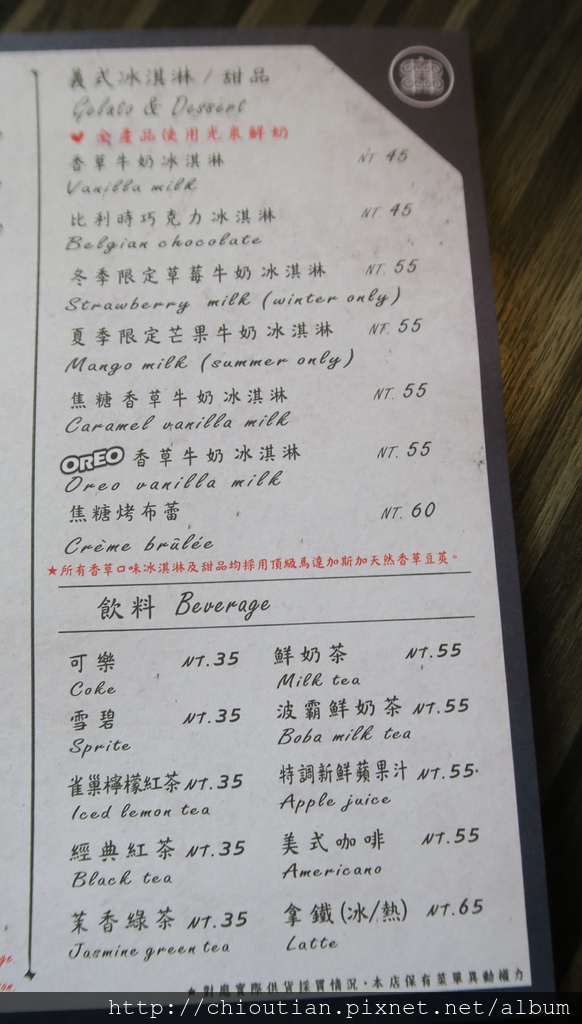 義式冰淇淋 / 甜品
Gelato & Dessert
♥ 全產品使用光泉鮮奶
香草牛奶冰淇淋 NT. 45
Vanilla milk
比利時巧克力冰淇淋 NT. 45
Belgian chocolate
冬季限定草莓牛奶冰淇淋 NT. 55
Strawberry milk (winter only)
夏季限定芒果牛奶冰淇淋 NT. 55
Mango milk (summer only)
焦糖香草牛奶冰淇淋 NT. 55
Caramel vanilla milk
OREO 香草牛奶冰淇淋 NT. 55
Oreo vanilla milk
焦糖烤布蕾 NT. 60
Crème brûlée
★所有香草口味冰淇淋及甜品均採用頂級馬達加斯加天然香草豆莢。
飲料 Beverage
可樂 NT.35 鮮奶茶 NT.55
Coke Milk tea
雪碧 NT.35 波霸鮮奶茶 NT.55
Sprite Boba milk tea
雀巢檸檬紅茶 NT.35 特調新鮮蘋果汁 NT.55
Iced lemon tea Apple juice
經典紅茶 NT.35 美式咖啡 NT.55
Black tea Americano
茉香綠茶 NT.35 拿鐵(冰/熱) NT.65
Jasmine green tea Latte
★對應實際供貨採買情況,本店保有菜單異動權力
http://chioutian.pixnet.net/album